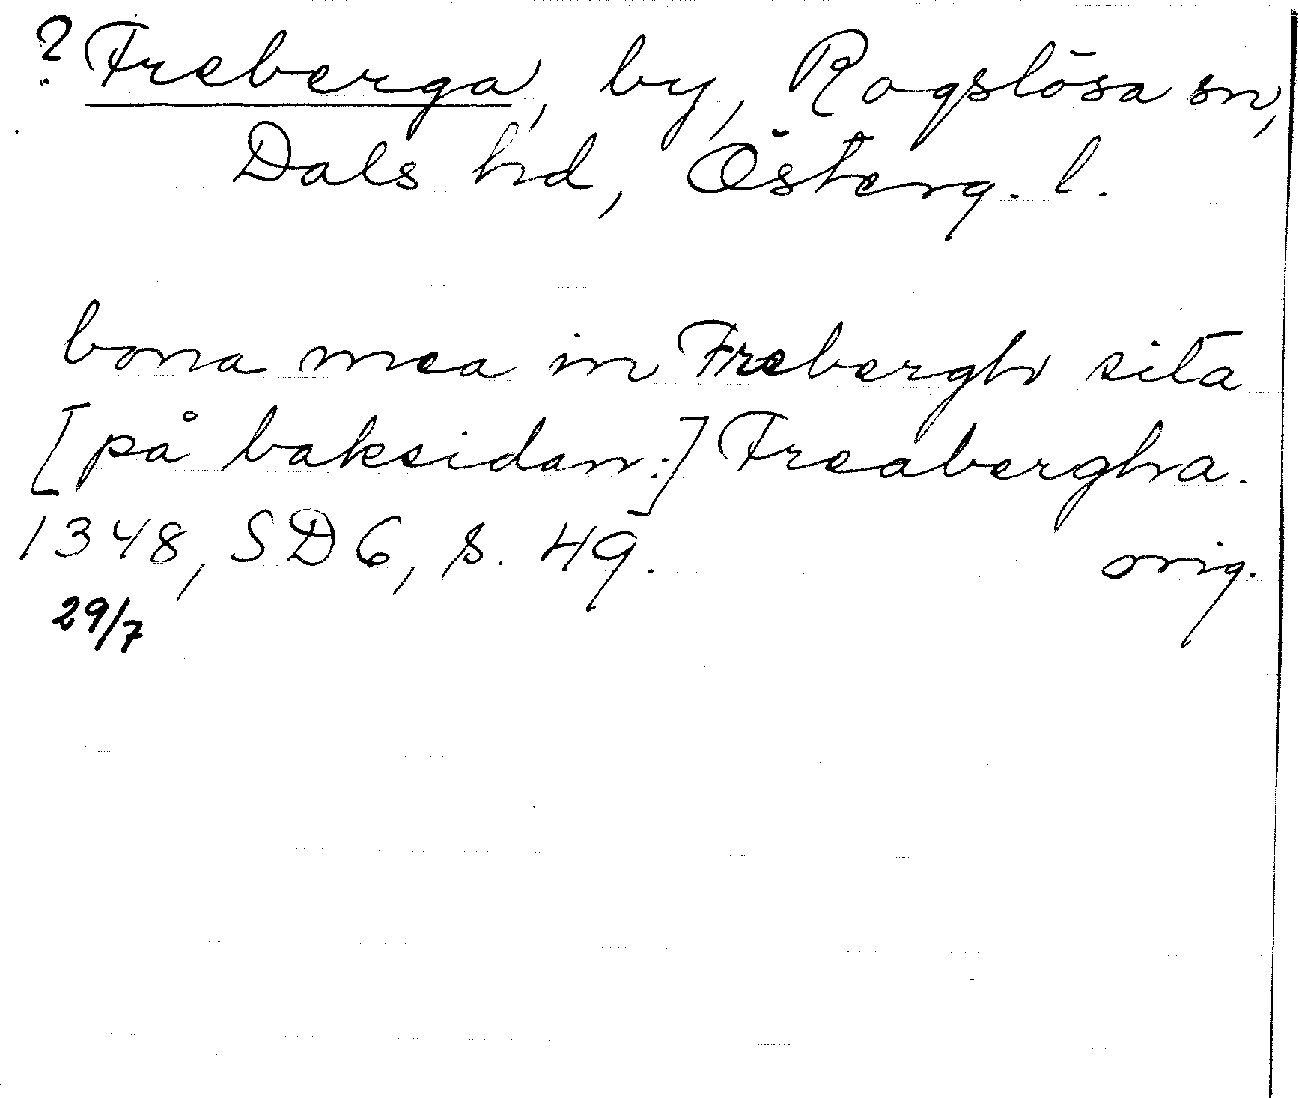 ? Freberga, by, Rogslösa sn,
Dals hd, Österg. l.
bona mea in Frebergh sita
[på baksidan:] Freabergha.
1348, SD 6, s. 49. orig.
29/7